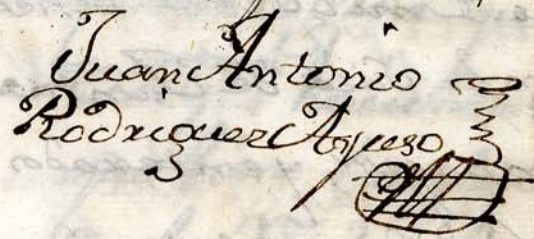 Juan Antonio
Rodriguez Ayuso